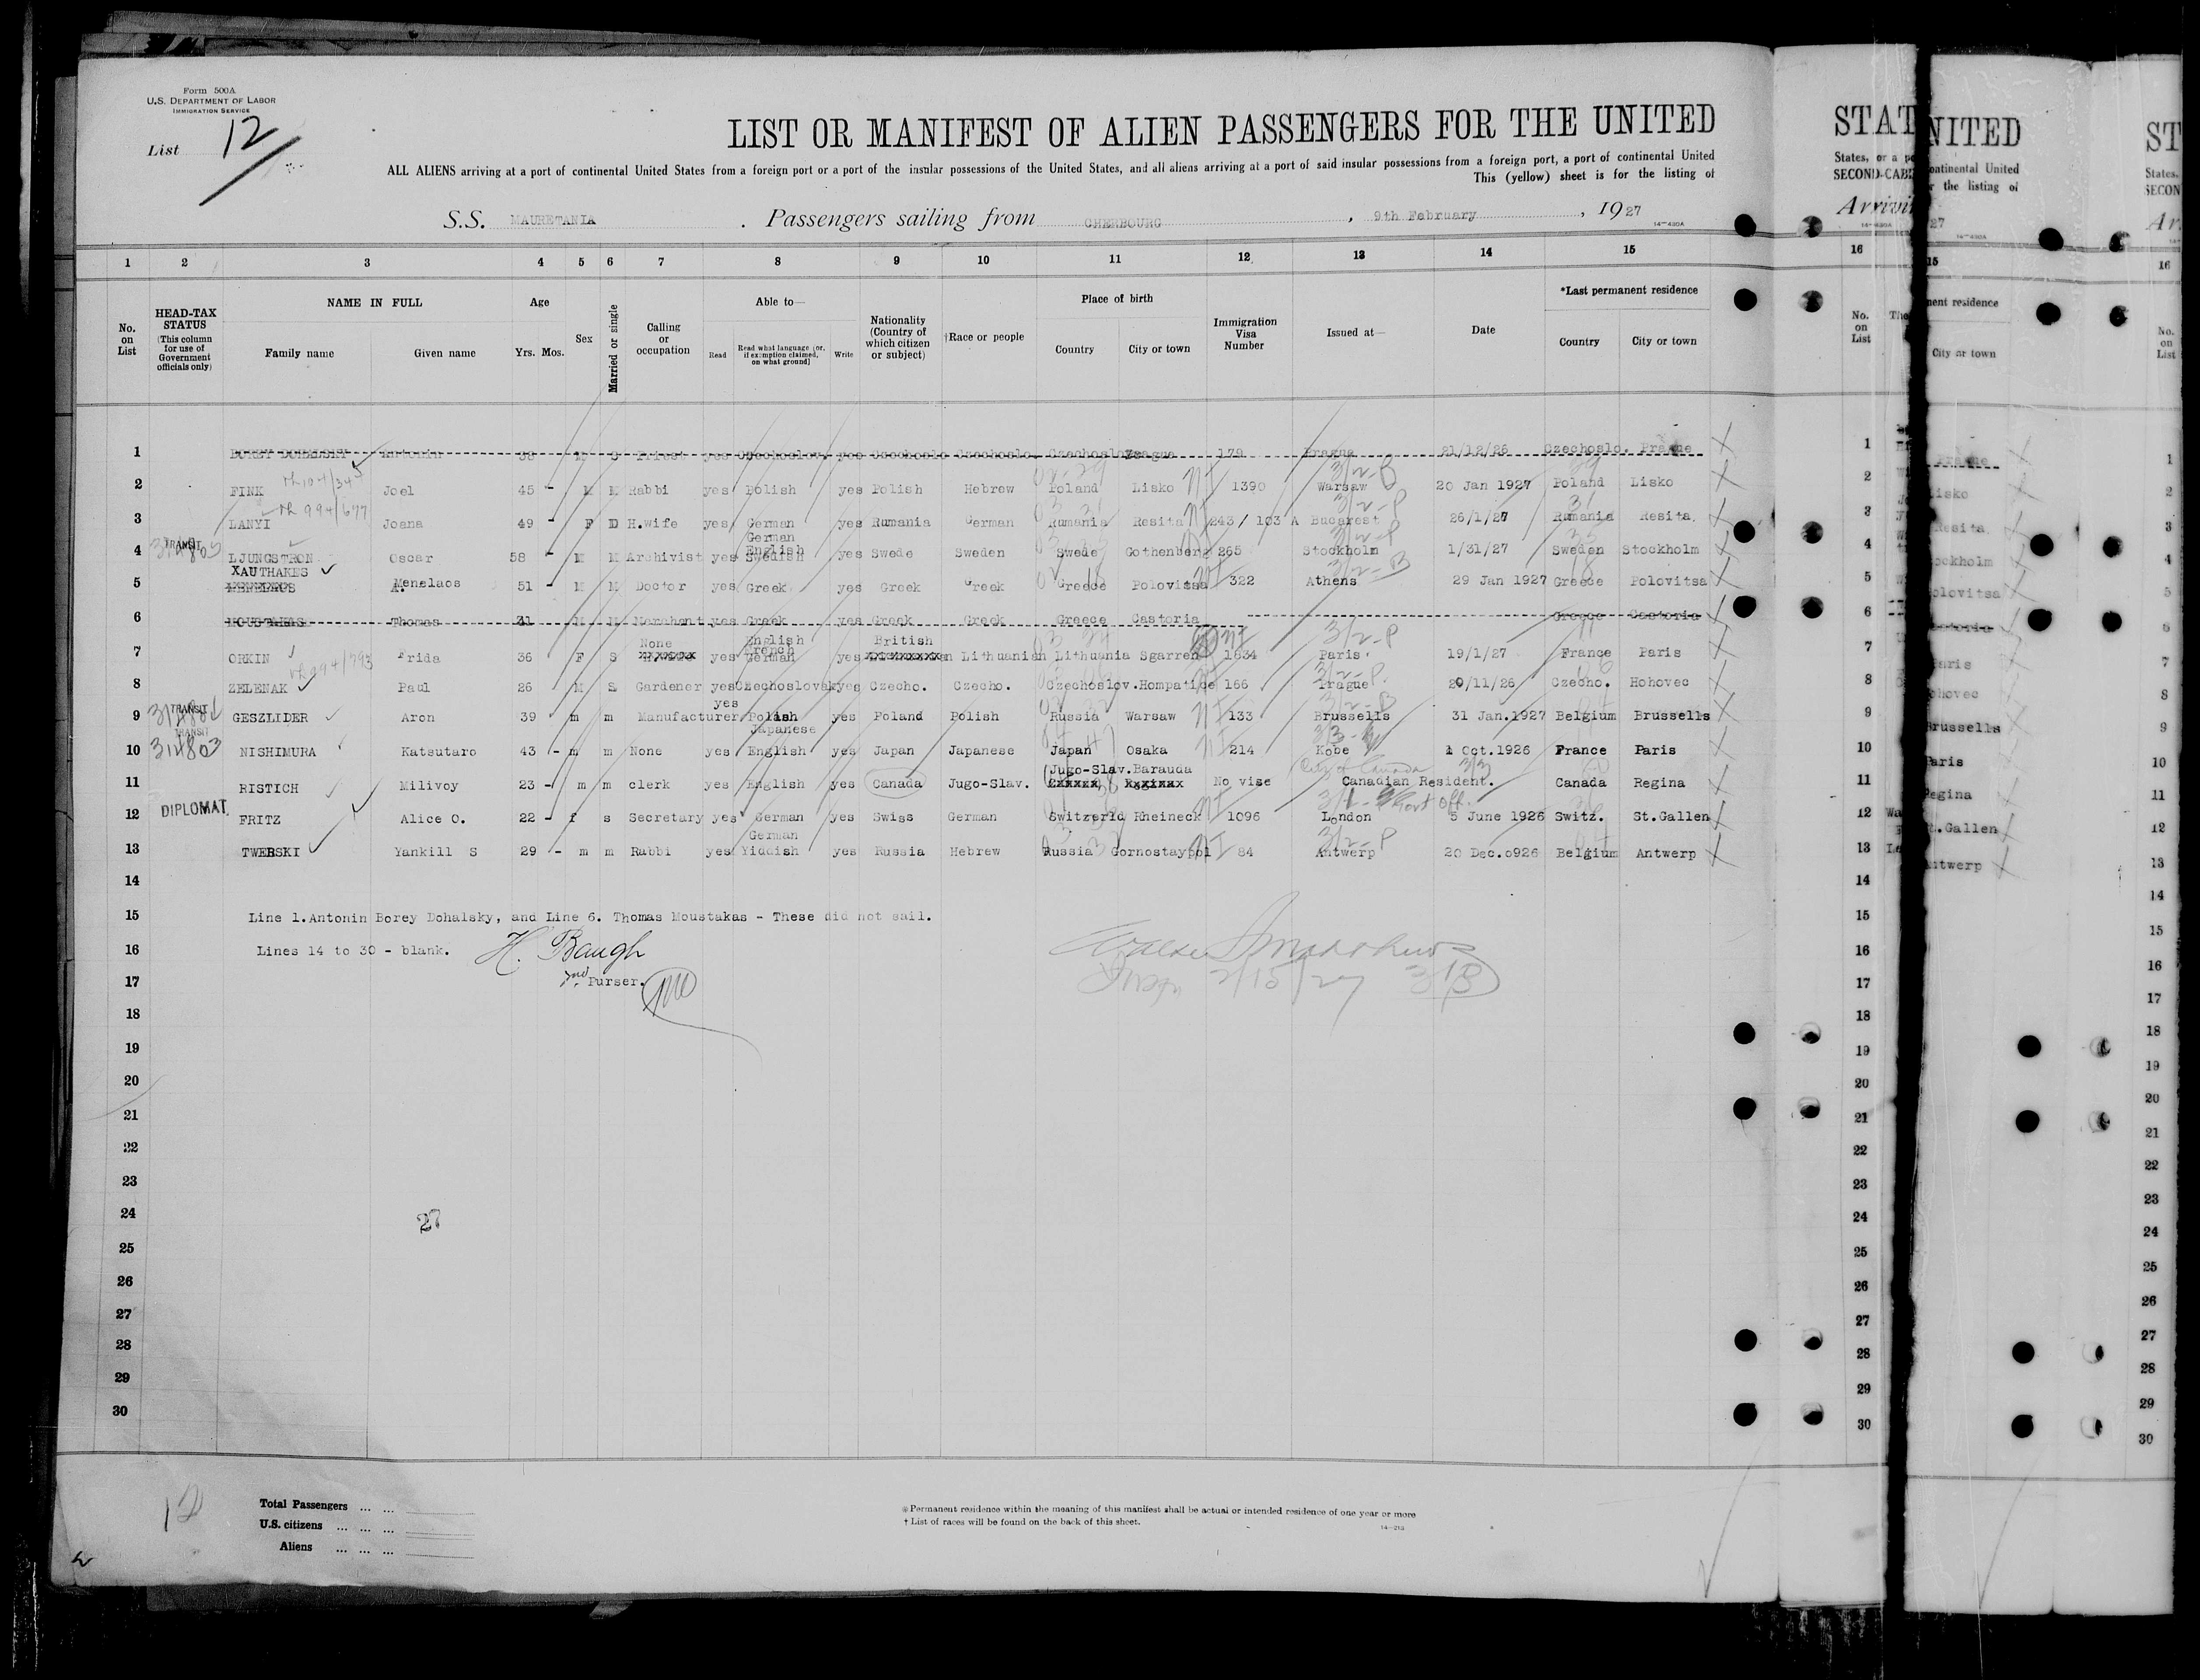 Form 500A
U.S. DEPARTMENT OF LABOR
IMMIGRATION SERVICE
List 12
LIST OR MANIFEST OF ALIEN PASSENGERS FOR THE UNITED
ALL ALIENS arriving at a port of continental United States from a foreign port or a port of the insular possessions of the United States, and all aliens arriving at a port of said insular possessions from a foreign port, a port of continental United
This (yellow) sheet is for the listing of
S.S. MAURETANIA. Passengers sailing from CHERBOURG, 9th February, 1927
14-430A
1 2 3 4 5 6 7 8 9 10 11 12 13 14 15
No. on List
HEAD-TAX STATUS (This column for use of Government officials only)
NAME IN FULL
Family name Given name
Age
Yrs. Mos.
Sex
Married or single
Calling or occupation
Able to—
Read
Read what language (or, if exemption claimed, on what ground)
Write
Nationality (Country of which citizen or subject)
†Race or people
Place of birth
Country City or town
Immigration Visa Number
Issued at—
Date
*Last permanent residence
Country City or town
1 BOREY DOHALSKY Antonin 38 M S Priest yes Czechoslov. yes Czechoslo Czechoslo. Czechoslov Prague 179 Prague 21/12/26 Czechoslo. Prague
2 FINK Joel 45 M M Rabbi yes Polish yes Polish Hebrew Poland Lisko 1390 Warsaw 20 Jan 1927 Poland Lisko
3 LANYI Joana 49 F D H.wife yes German yes Rumania German Rumania Resita 243/ 103 A Bucarest 26/1/27 Rumania Resita.
TRANSIT
German
English
4 LJUNGSTRON Oscar 58 M M Archivist yes Swedish yes Swede Sweden Swede Gothenberg 265 Stockholm 1/31/27 Sweden Stockholm
XAUTHAKES
5 A. Menelaos 51 M M Doctor yes Greek yes Greek Greek Greece Polovitsa 322 Athens 29 Jan 1927 Greece Polovitsa
6 MOUSTAKAS Thomas 31 M M Merchant yes Greek yes Greek Greek Greece Castoria Greece Castoria
None English French British
7 ORKIN Frida 36 F S yes German yes Lithuanian Lithuania Sgarren 1834 Paris. 19/1/27 France Paris
8 ZELENAK Paul 26 M S Gardener yes Czechoslovak yes Czecho. Czecho. Czechoslov. Hompatice 166 Prague 20/11/26 Czecho. Hohovec
TRANSIT
314804
yes
9 GESZLIDER Aron 39 m m Manufacturer Polish yes Poland Polish Russia Warsaw 133 Brussells 31 Jan.1927 Belgium Brussells
TRANSIT
Japanese
10 314803 NISHIMURA Katsutaro 43 m m None yes English yes Japan Japanese Japan Osaka 214 Kobe 1 Oct.1926 France Paris
Jugo-Slav. Barauda
11 RISTICH Milivoy 23 m m clerk yes English yes Canada Jugo-Slav. No vise Canadian Resident. Canada Regina
DIPLOMAT.
12 FRITZ Alice O. 22 f s Secretary yes German yes Swiss German Switzerld Rheineck 1096 London 5 June 1926 Switz. St.Gallen
German
13 TWERSKI Yankill S 29 m m Rabbi yes Yiddish yes Russia Hebrew Russia Gornostaypol 84 Antwerp 20 Dec.o926 Belgium Antwerp
14
15 Line 1.Antonin Borey Dohalsky, and Line 6. Thomas Moustakas - These did not sail.
16 Lines 14 to 30 - blank. H. Baugh
17 2nd. Purser.
2/15/27
18
19
20
21
22
23
24
27
25
26
27
28
29
30
12
Total Passengers ... ...
U.S. citizens ... ... ...
Aliens ... ... ...
*Permanent residence within the meaning of this manifest shall be actual or intended residence of one year or more
†List of races will be found on the back of this sheet.
14-213
STAT
States, or a po
SECOND-CABI
Arrivin
16
No. on List
The
NITED
ontinental United
r the listing of
27
15
nent residence
City or town
Prague
Lisko
Resita.
ockholm
olovitsa
Castoria
Paris
ohovec
Brussells
Paris
Regina
t.Gallen
Antwerp
ST
States,
SECON
Ar
16
No. on List